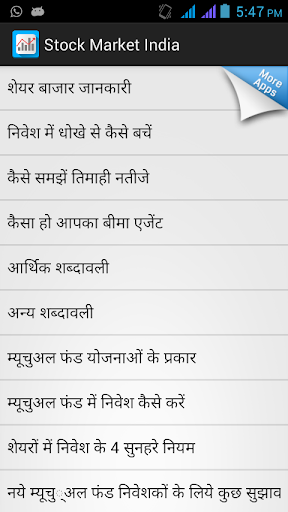 5:47 PM
Stock Market India
More Apps
शेयर बाजार जानकारी
निवेश में धोखे से कैसे बचें
कैसे समझें तिमाही नतीजे
कैसा हो आपका बीमा एजेंट
आर्थिक शब्दावली
अन्य शब्दावली
म्यूचुअल फंड योजनाओं के प्रकार
म्यूचुअल फंड में निवेश कैसे करें
शेयरों में निवेश के 4 सुनहरे नियम
नये म्यूचु्अल फंड निवेशकों के लिये कुछ सुझाव